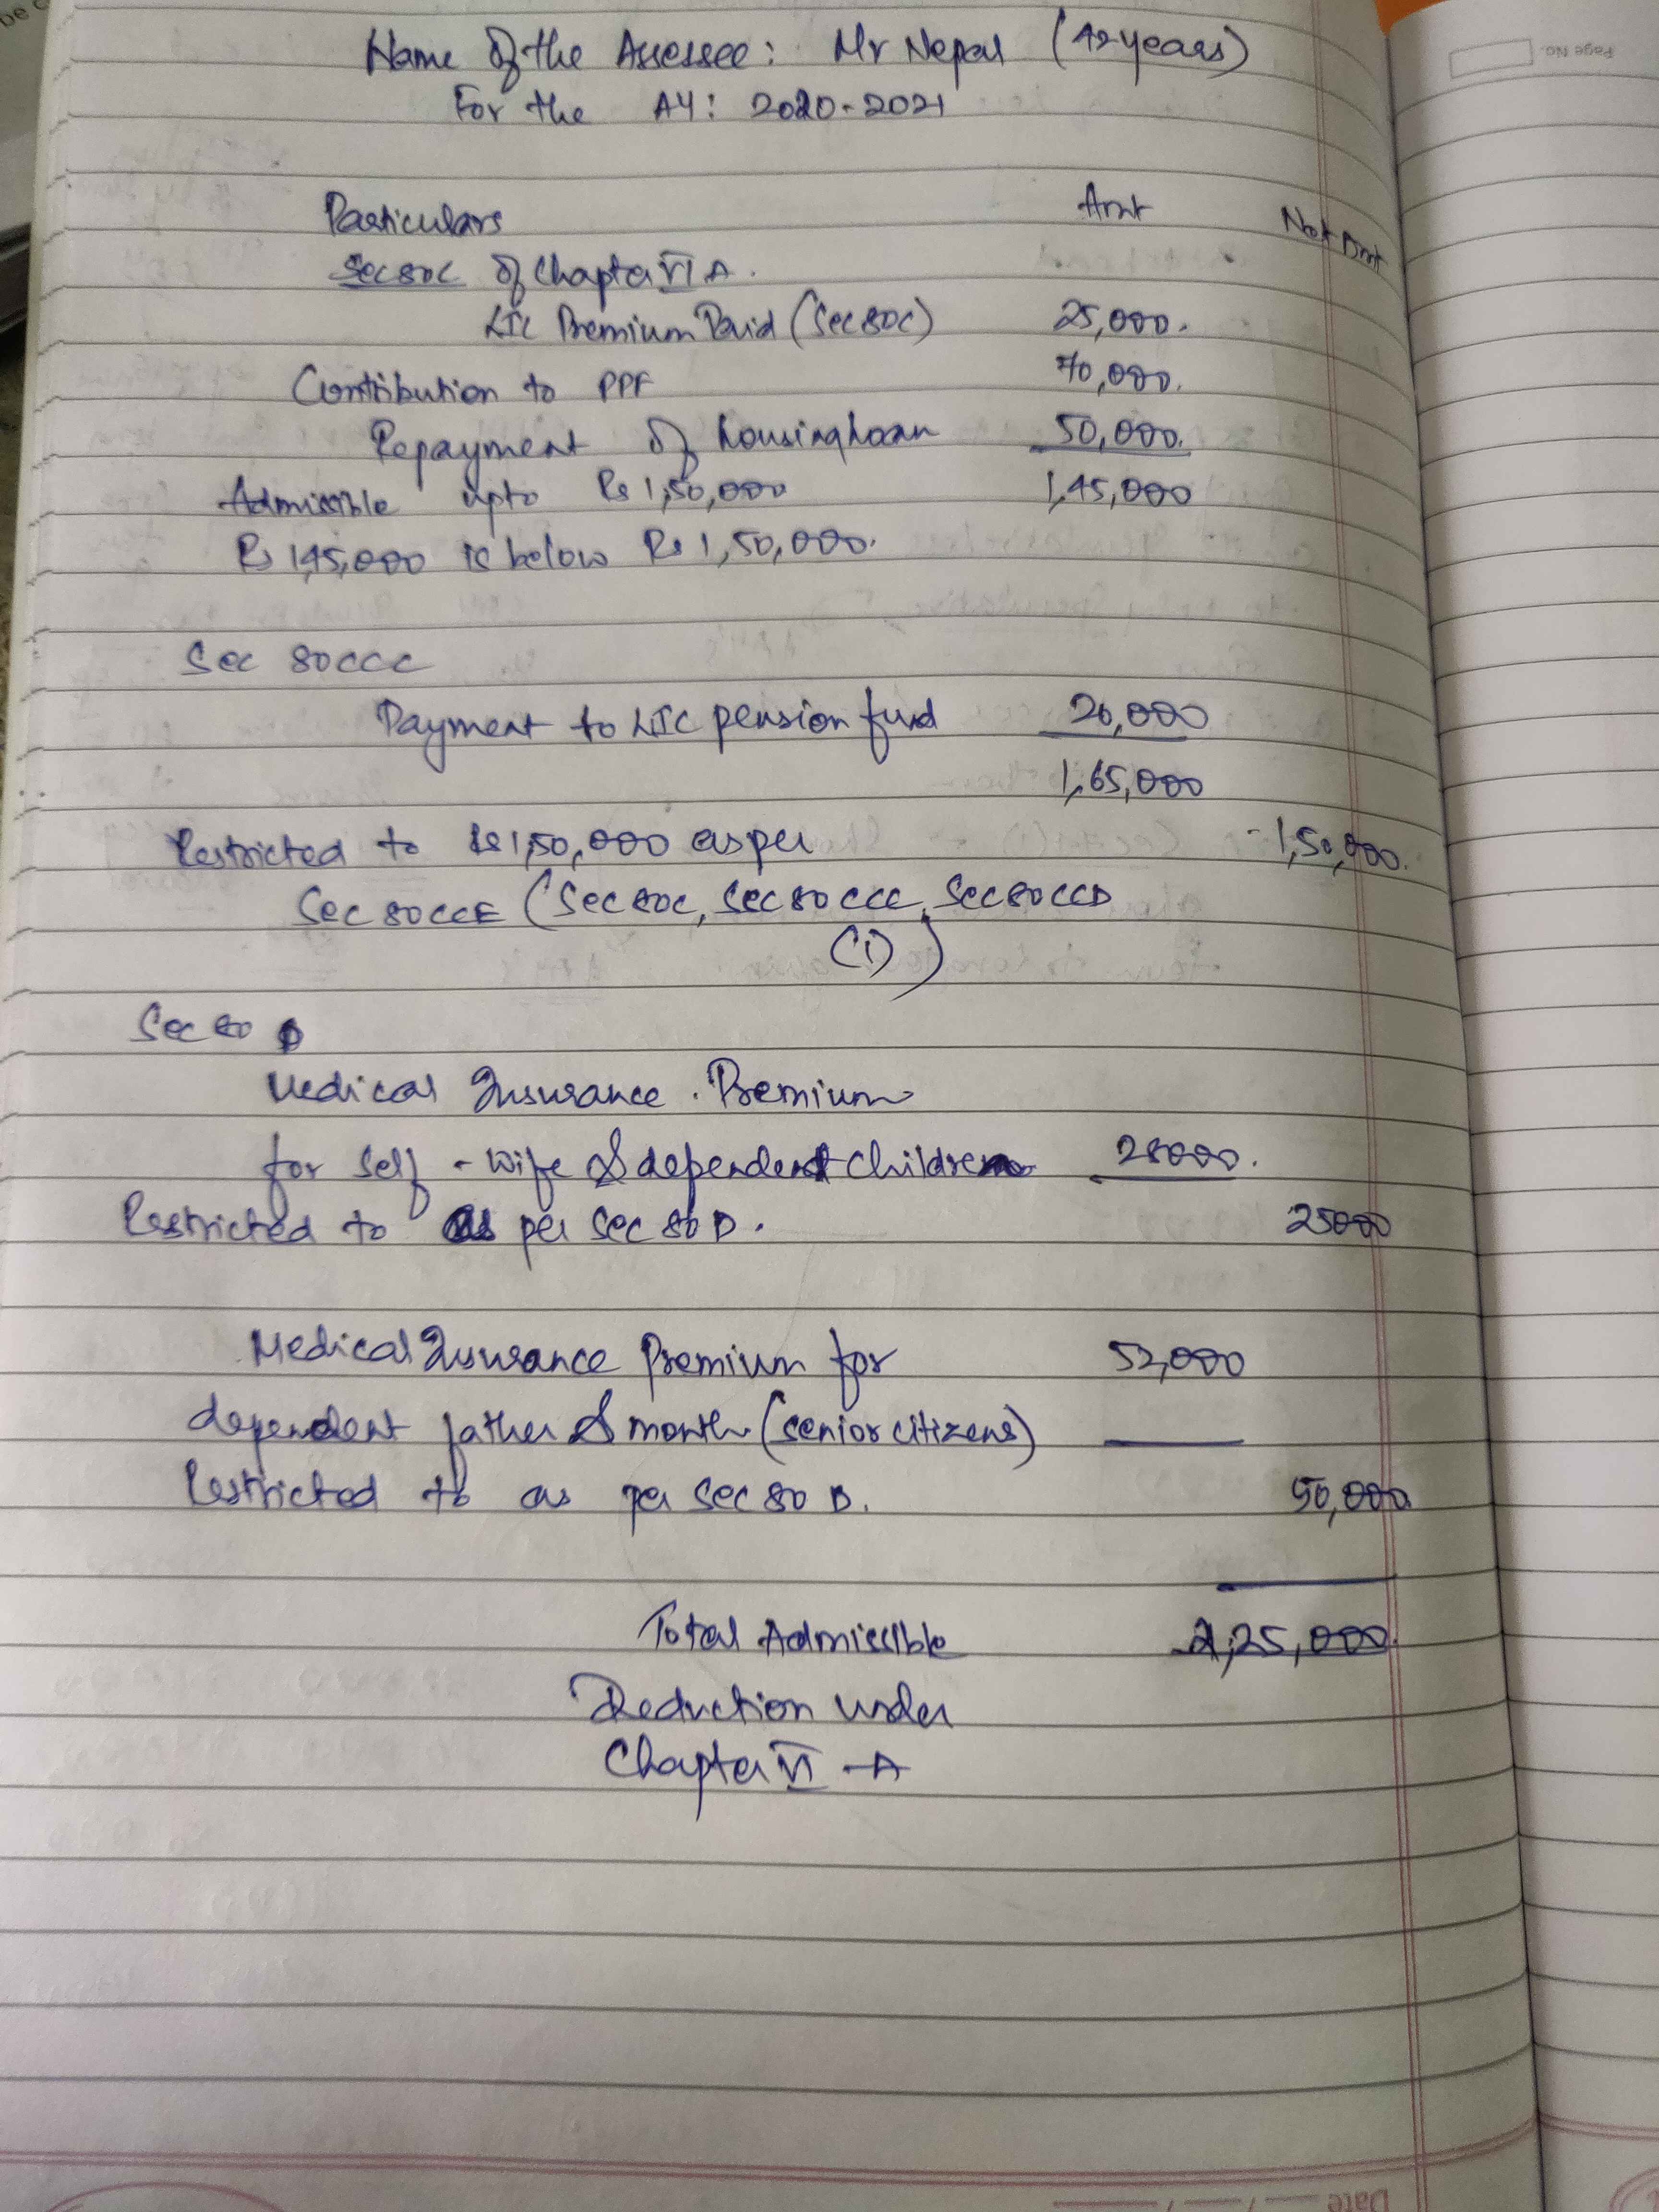 Name of the Assessee: Mr Nepal (42 years)
For the AY: 2020-2021
Particulars Amt Net Amt
Sec 80C of Chapter VI A.
LIC Premium Paid (Sec 80C) 25,000.
Contribution to PPF 70,000.
Repayment of housing loan 50,000.
Admissible upto Rs 1,50,000 1,45,000
Rs 1,45,000 is below Rs 1,50,000.
Sec 80CCC
Payment to LIC pension fund 20,000
1,65,000
Restricted to Rs 1,50,000 as per 1,50,000.
Sec 80CCE (Sec 80C, Sec 80CCC, Sec 80CCD
(1))
Sec 80 D
Medical Insurance Premium
for Self - Wife & dependent Children 28000.
Restricted to as per Sec 80 D. 25000
Medical Insurance Premium for 52,000
dependent father & month (senior citizens)
Restricted to as per Sec 80 D. 50,000
Total Admissible 2,25,000
Deduction under
Chapter VI -A
Page No.
Date